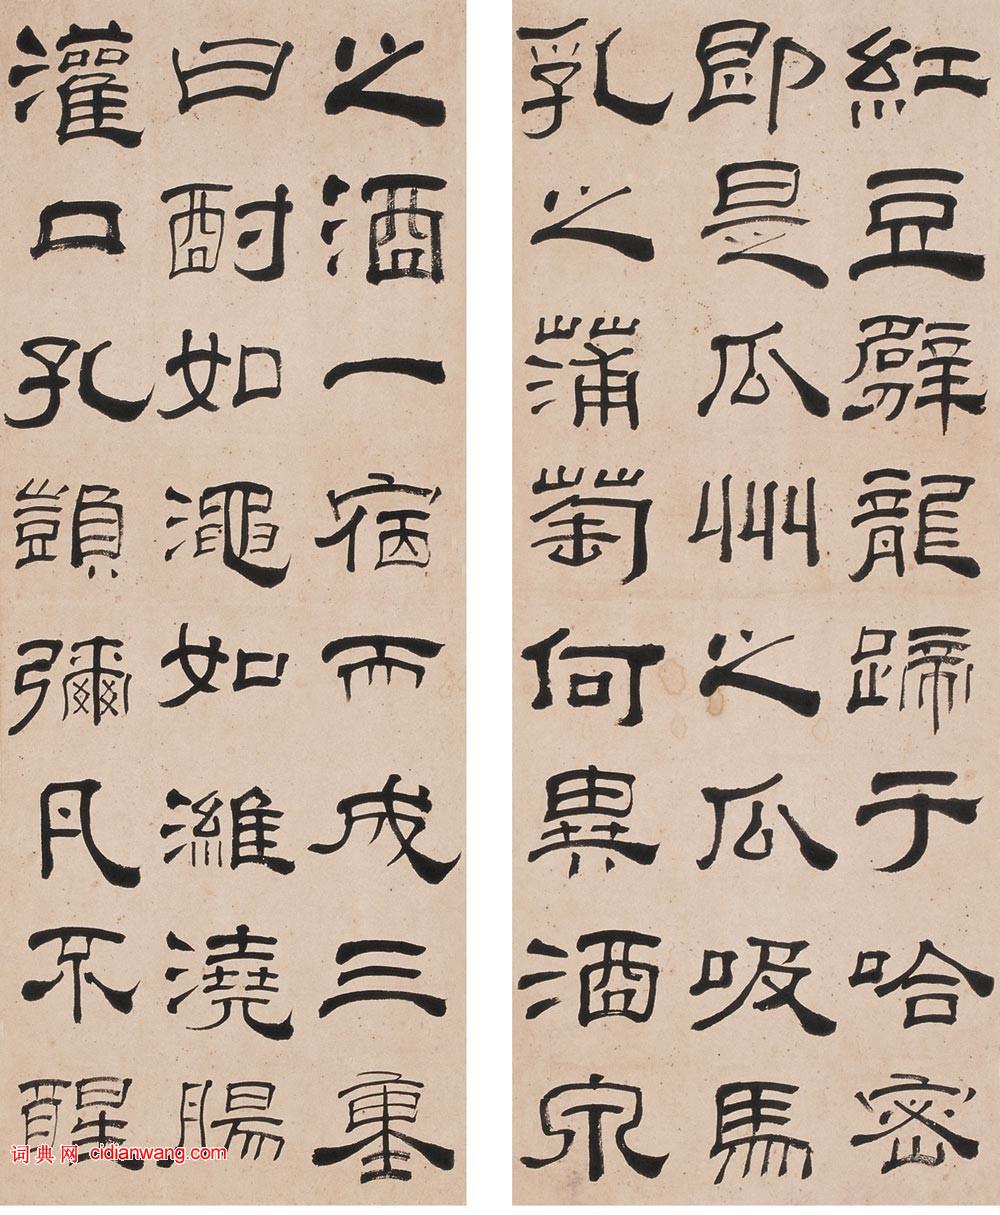 紅豆劈龍蹄于哈密
即是瓜州之瓜吸馬
乳之蒲萄何異酒泉
之酒一宿而成三重
曰酎如澠如濰澆腸
灌口孔顗彌月不醒
词典网 cidianwang.com